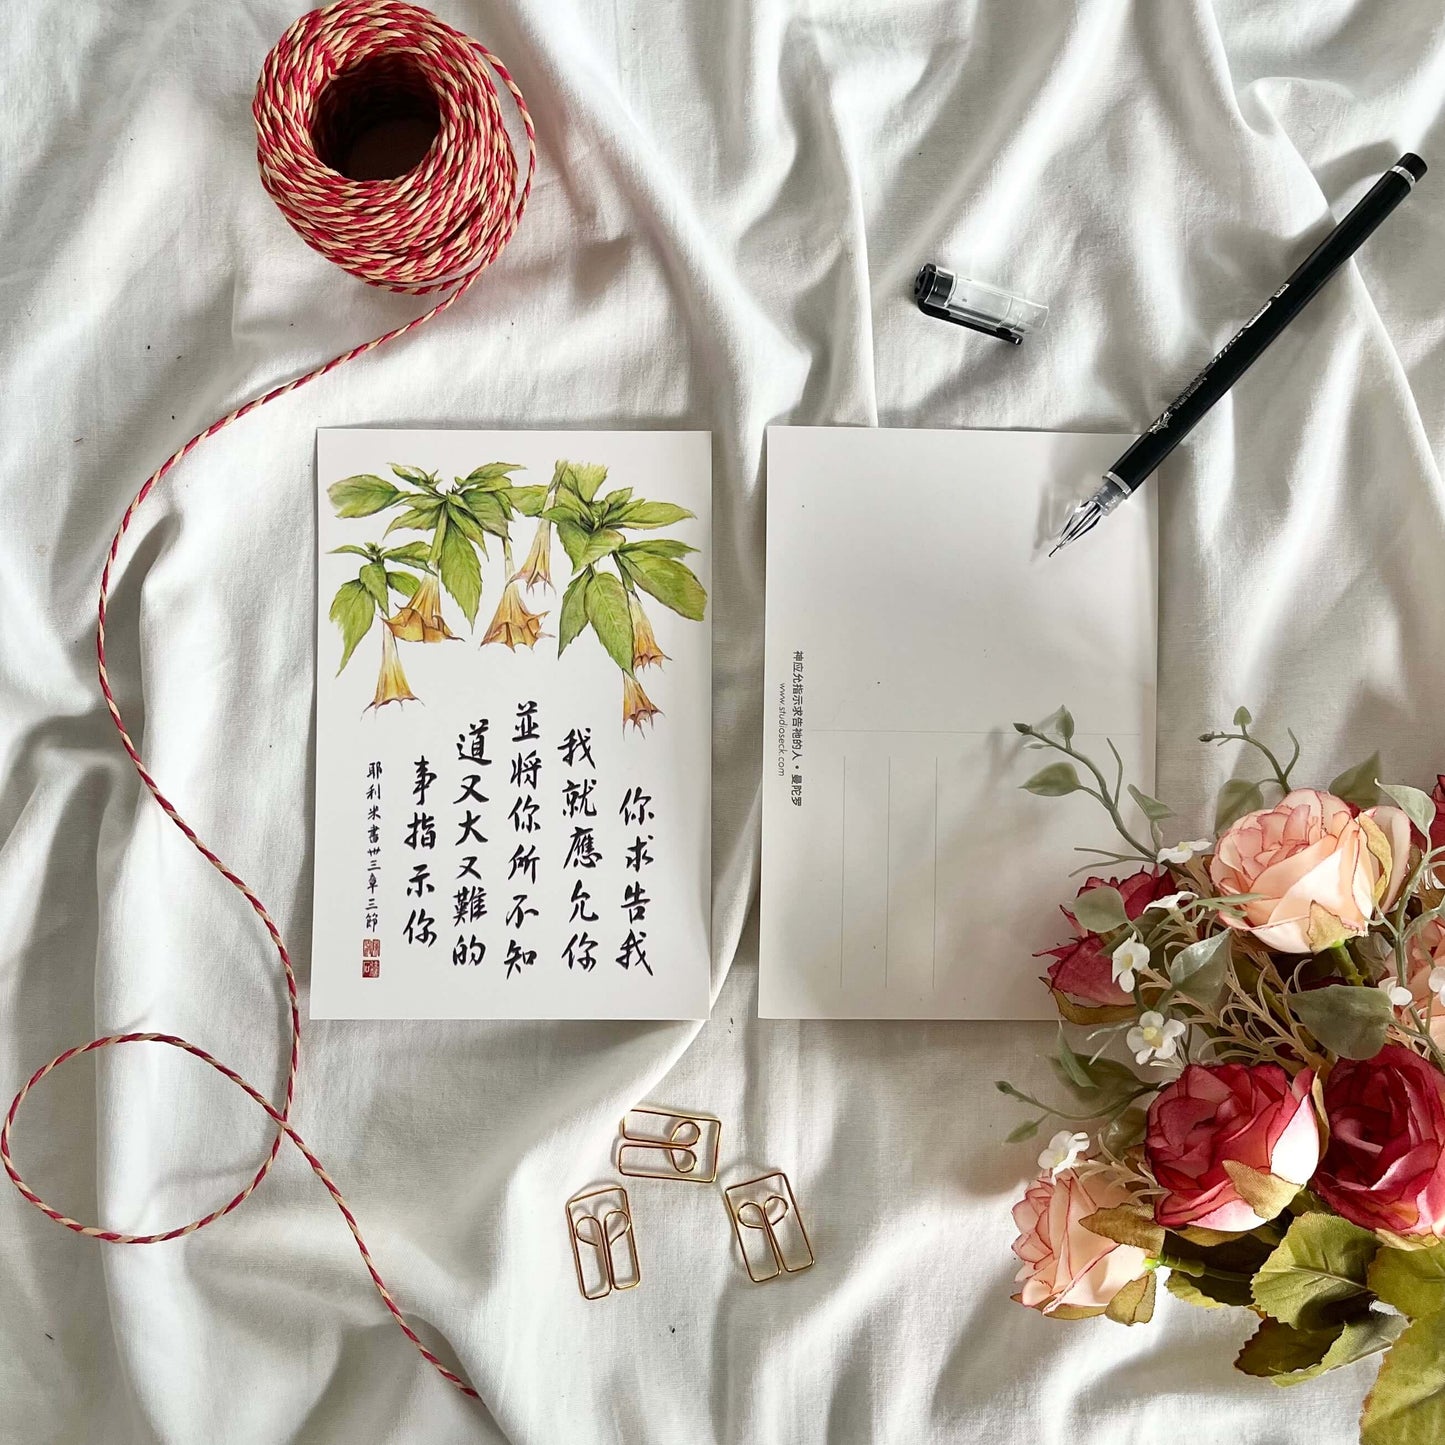 你求告我
我就應允你
並將你所不知
道又大又難的
事指示你
耶利米書卅三章三節
神应允指示求告祂的人•曼陀罗
www.studioseck.com